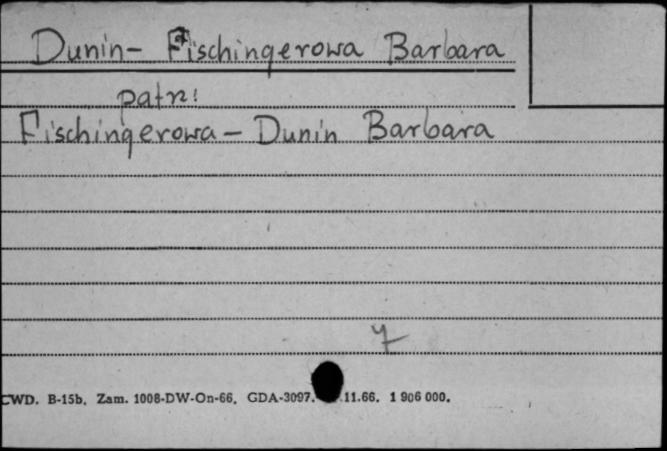 Dunin- Fischingerowa Barbara
patrz:
Fischingerowa - Dunin Barbara
CWD. B-15b. Zam. 1008-DW-On-66. GDA-3097. .11.66. 1 906 000.